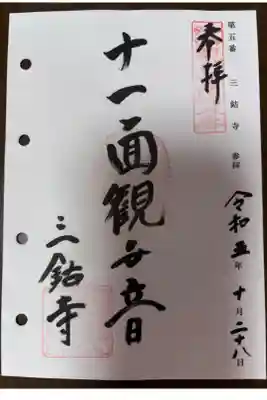 第五番 三鈷寺 参拝
奉拝
十一面観世音
三鈷寺
令和五年十月二十八日